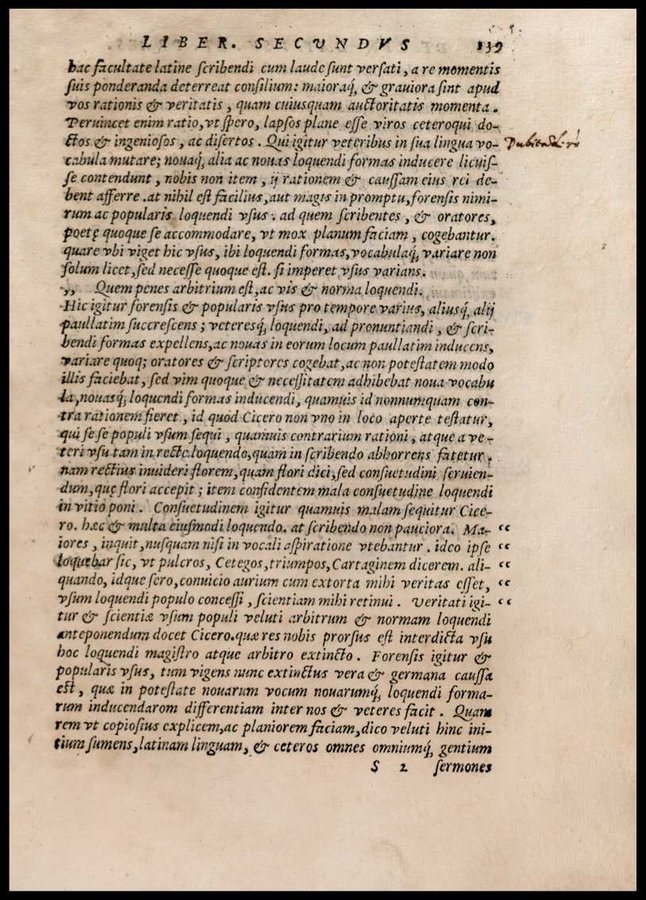 LIBER. SECVNDVS 139
hac facultate latine scribendi cum laude sunt versati, a re momentis
suis ponderanda deterreat consilium: maioraq́; & grauiora sint apud
vos rationis & veritatis, quam cuiusquam auctoritatis momenta.
Peruincet enim ratio, vt spero, lapsos plane esse viros ceteroqui do-
ctos & ingeniosos, ac disertos. Qui igitur veteribus in sua lingua vo-
cabula mutare; nouaq́; alia ac nouas loquendi formas inducere licuis-
se contendunt, nobis non item, ij rationem & caussam eius rei de-
bent afferre. at nihil est facilius, aut magis in promptu, forensis nimi-
rum ac popularis loquendi vsus. ad quem scribentes, & oratores,
poetę quoque se accommodare, vt mox planum faciam, cogebantur.
quare vbi viget hic vsus, ibi loquendi formas, vocabulaq́; variare non
solum licet, sed necesse quoque est. si imperet vsus varians.
,, Quem penes arbitrium est, ac vis & norma loquendi.
Hic igitur forensis & popularis vsus pro tempore varius, aliusq́; alij
paullatim succrescens; veteresq́; loquendi, ad pronuntiandi, & scri-
bendi formas expellens, ac nouas in eorum locum paullatim inducens,
variare quoq; oratores & scriptores cogebat, ac non potestatem modo
illis faciebat, sed vim quoque & necessitatem adhibebat noua vocabu
la, nouasq́; loquendi formas inducendi, quamuis id nonnumquam con-
tra rationem fieret, id quod Cicero non vno in loco aperte testatur,
qui se se populi vsum sequi, quamuis contrarium rationi, atque a ve-
teri vsu tam in recte loquendo, quam in scribendo abhorrens fatetur.
nam rectius inuideri florem, quam flori dici, sed consuetudini seruien-
dum, quę flori accepit; item confidentem mala consuetudine loquendi
in vitio poni. Consuetudinem igitur quamuis malam sequitur Cice-
ro. hæc & multa eiusmodi loquendo. at scribendo non pauciora. Ma- “
iores, inquit, nusquam nisi in vocali aspiratione vtebantur. ideo ipse “
loquebar sic, vt pulcros, Cetegos, triumpos, Cartaginem dicerem. ali- “
quando, idque sero, conuicio aurium cum extorta mihi veritas esset, “
vsum loquendi populo concessi, scientiam mihi retinui. Veritati igi- “
tur & scientiæ vsum populi veluti arbitrum & normam loquendi
anteponendum docet Cicero. quæ res nobis prorsus est interdicta vsu
hoc loquendi magistro atque arbitro extincto. Forensis igitur &
popularis vsus, tum vigens nunc extinctus vera & germana caussa
est, quæ in potestate nouarum vocum nouarumq́; loquendi forma-
rum inducendarom differentiam inter nos & veteres facit. Quam
rem vt copiosius explicem, ac planiorem faciam, dico veluti hinc ini-
tium sumens, latinam linguam, & ceteros omnes omniumq́; gentium
S 2 sermones